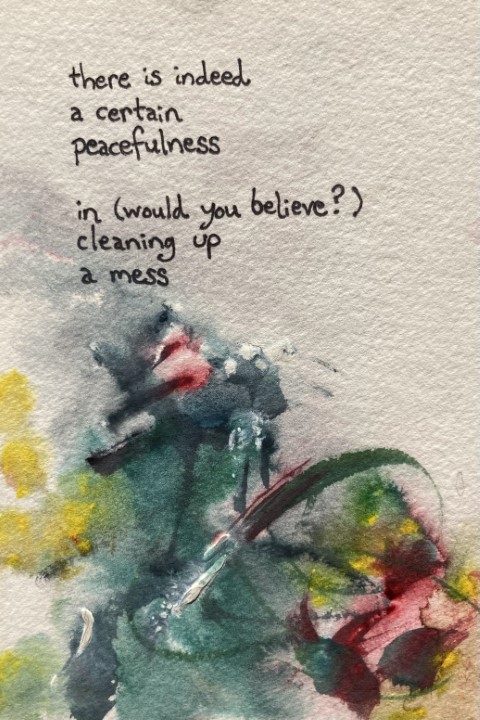 there is indeed
a certain
peacefulness
in (would you believe?)
cleaning up
a mess